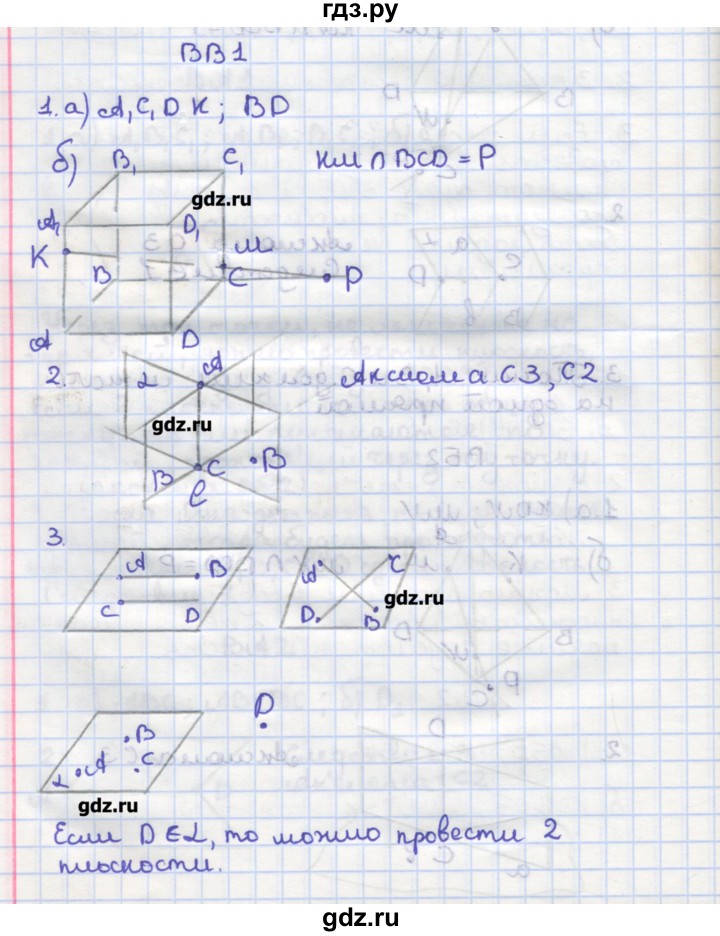 гдз.ру
ВВ1
1. а) A, C, D K; BD
б)
B₁
C₁
KM ∩ BCD = P
gdz.ru
A₁
D₁
K
M
B
C
P
A
D
2.
α
A
Аксиома С3, С2
gdz.ru
B
C
B
ℓ
3.
A
B
C
D
A
C
gdz.ru
D
B
D
B
C
A
α
gdz.ru
Если D∈α, то можно провести 2
плоскости.
gdz.ru